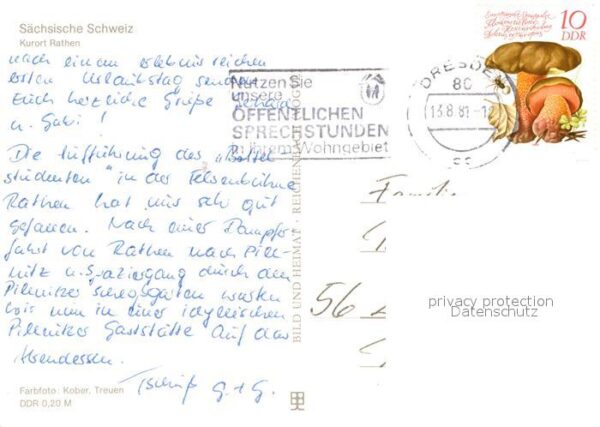 Sächsische Schweiz
Kurort Rathen
nach einem erlebnisreichen
ersten Urlaubstag senden
Euch herzliche Grüße
u. Gabi!
Die Aufführung des "Bettel
studenten" in der Felsenbühne
Rathen hat uns sehr gut
gefallen. Nach einer Dampfer
fahrt von Rathen nach Pill-
nitz u. Spaziergang durch den
Pillnitzer Schloßgarten warten
wir nun in einer idyllischen
Pillnitzer Gaststätte auf das
Abendessen.
Tschüß G. + G.
Farbfoto: Kober, Treuen
DDR 0,20 M
BILD UND HEIMAT · REICHENBACH
Nutzen Sie
unsere
ÖFFENTLICHEN
SPRECHSTUNDEN
in Ihrem Wohngebiet
DRESDEN
80
13.8.81
10
DDR
Familie
56
privacy protection
Datenschutz